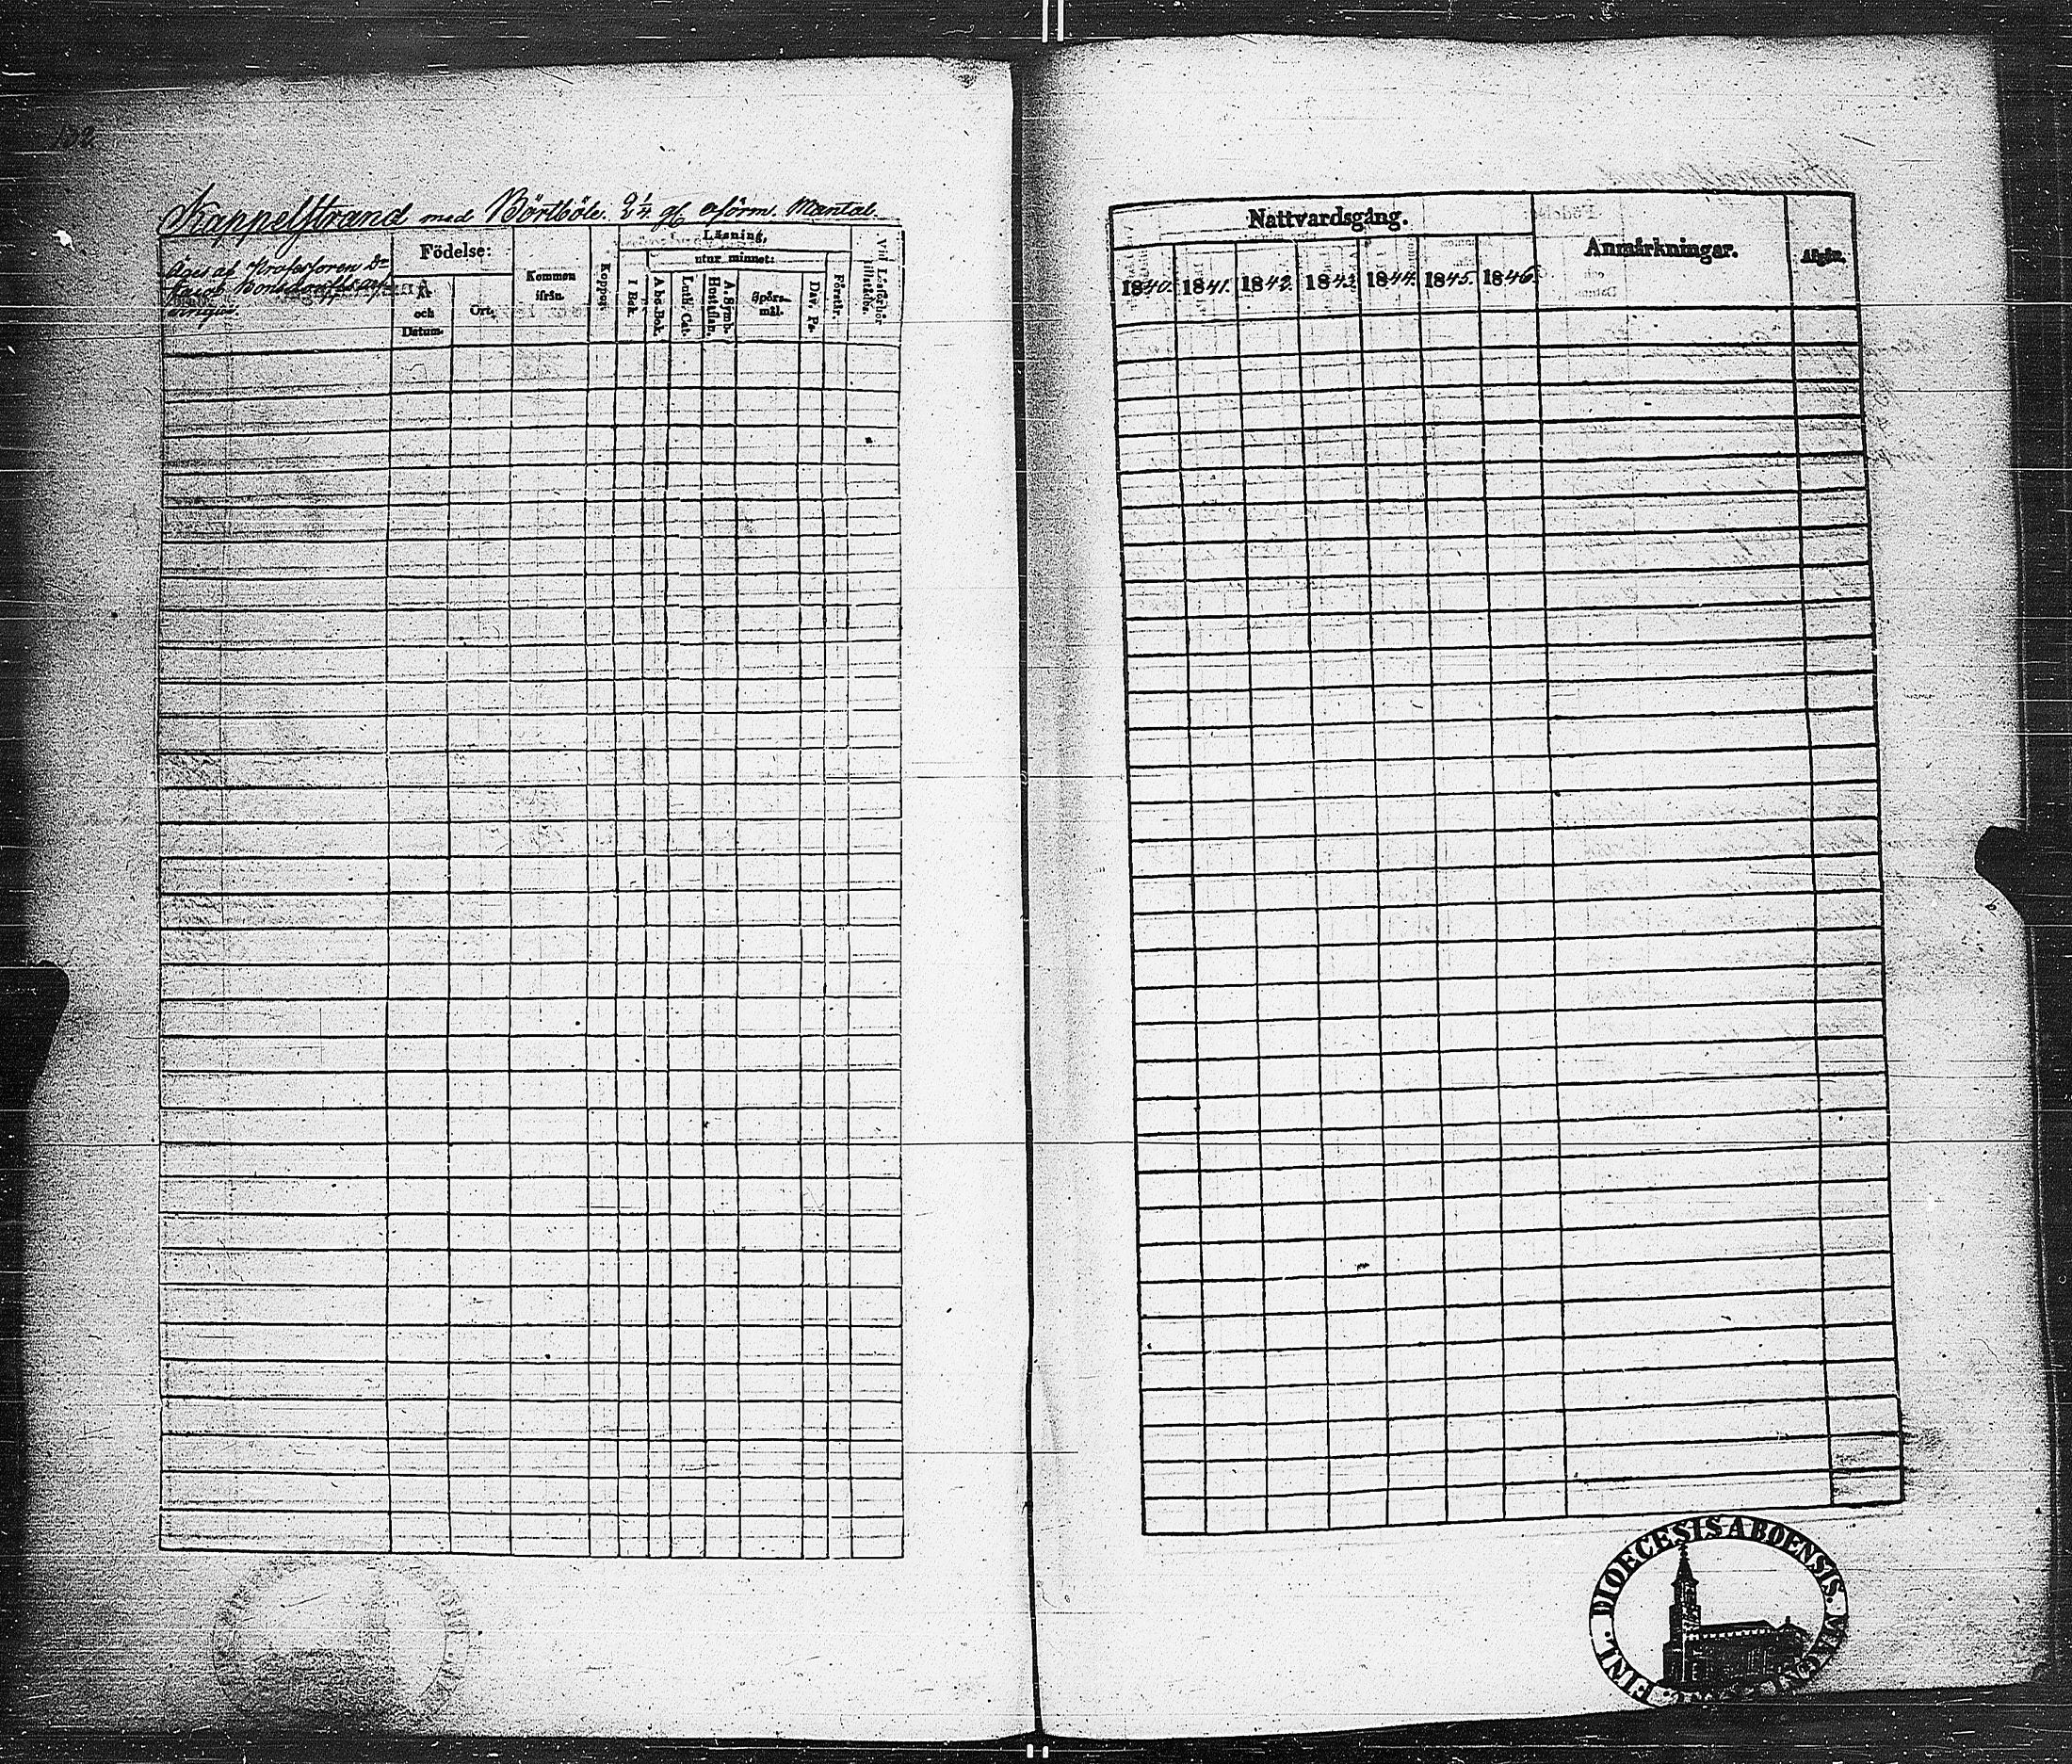 132.
Kappelstrand med Börtböle. 2 1/4. oförm. Mantal.
Äges af Professoren Dr
Jacob Bonsdorffs arf-
vingar.
Födelse:
År
och
Datum.
Ort.
Kommen
ifrån.
Koppor.
Läsning,
utur minnet:
I Bok.
A b c Bok.
Luth. Cat.
A. Symb.
Hustaflan.
Spörs-
mål.
Dav. Ps.
Förstår.
Vid Läsförhör
tillstädes.
Nattvardsgång.
1840.
1841.
1842.
1843.
1844.
1845.
1846.
Anmärkningar.
Afgån.
DIOECESIS ABOENSIS. MAGNI FINL.